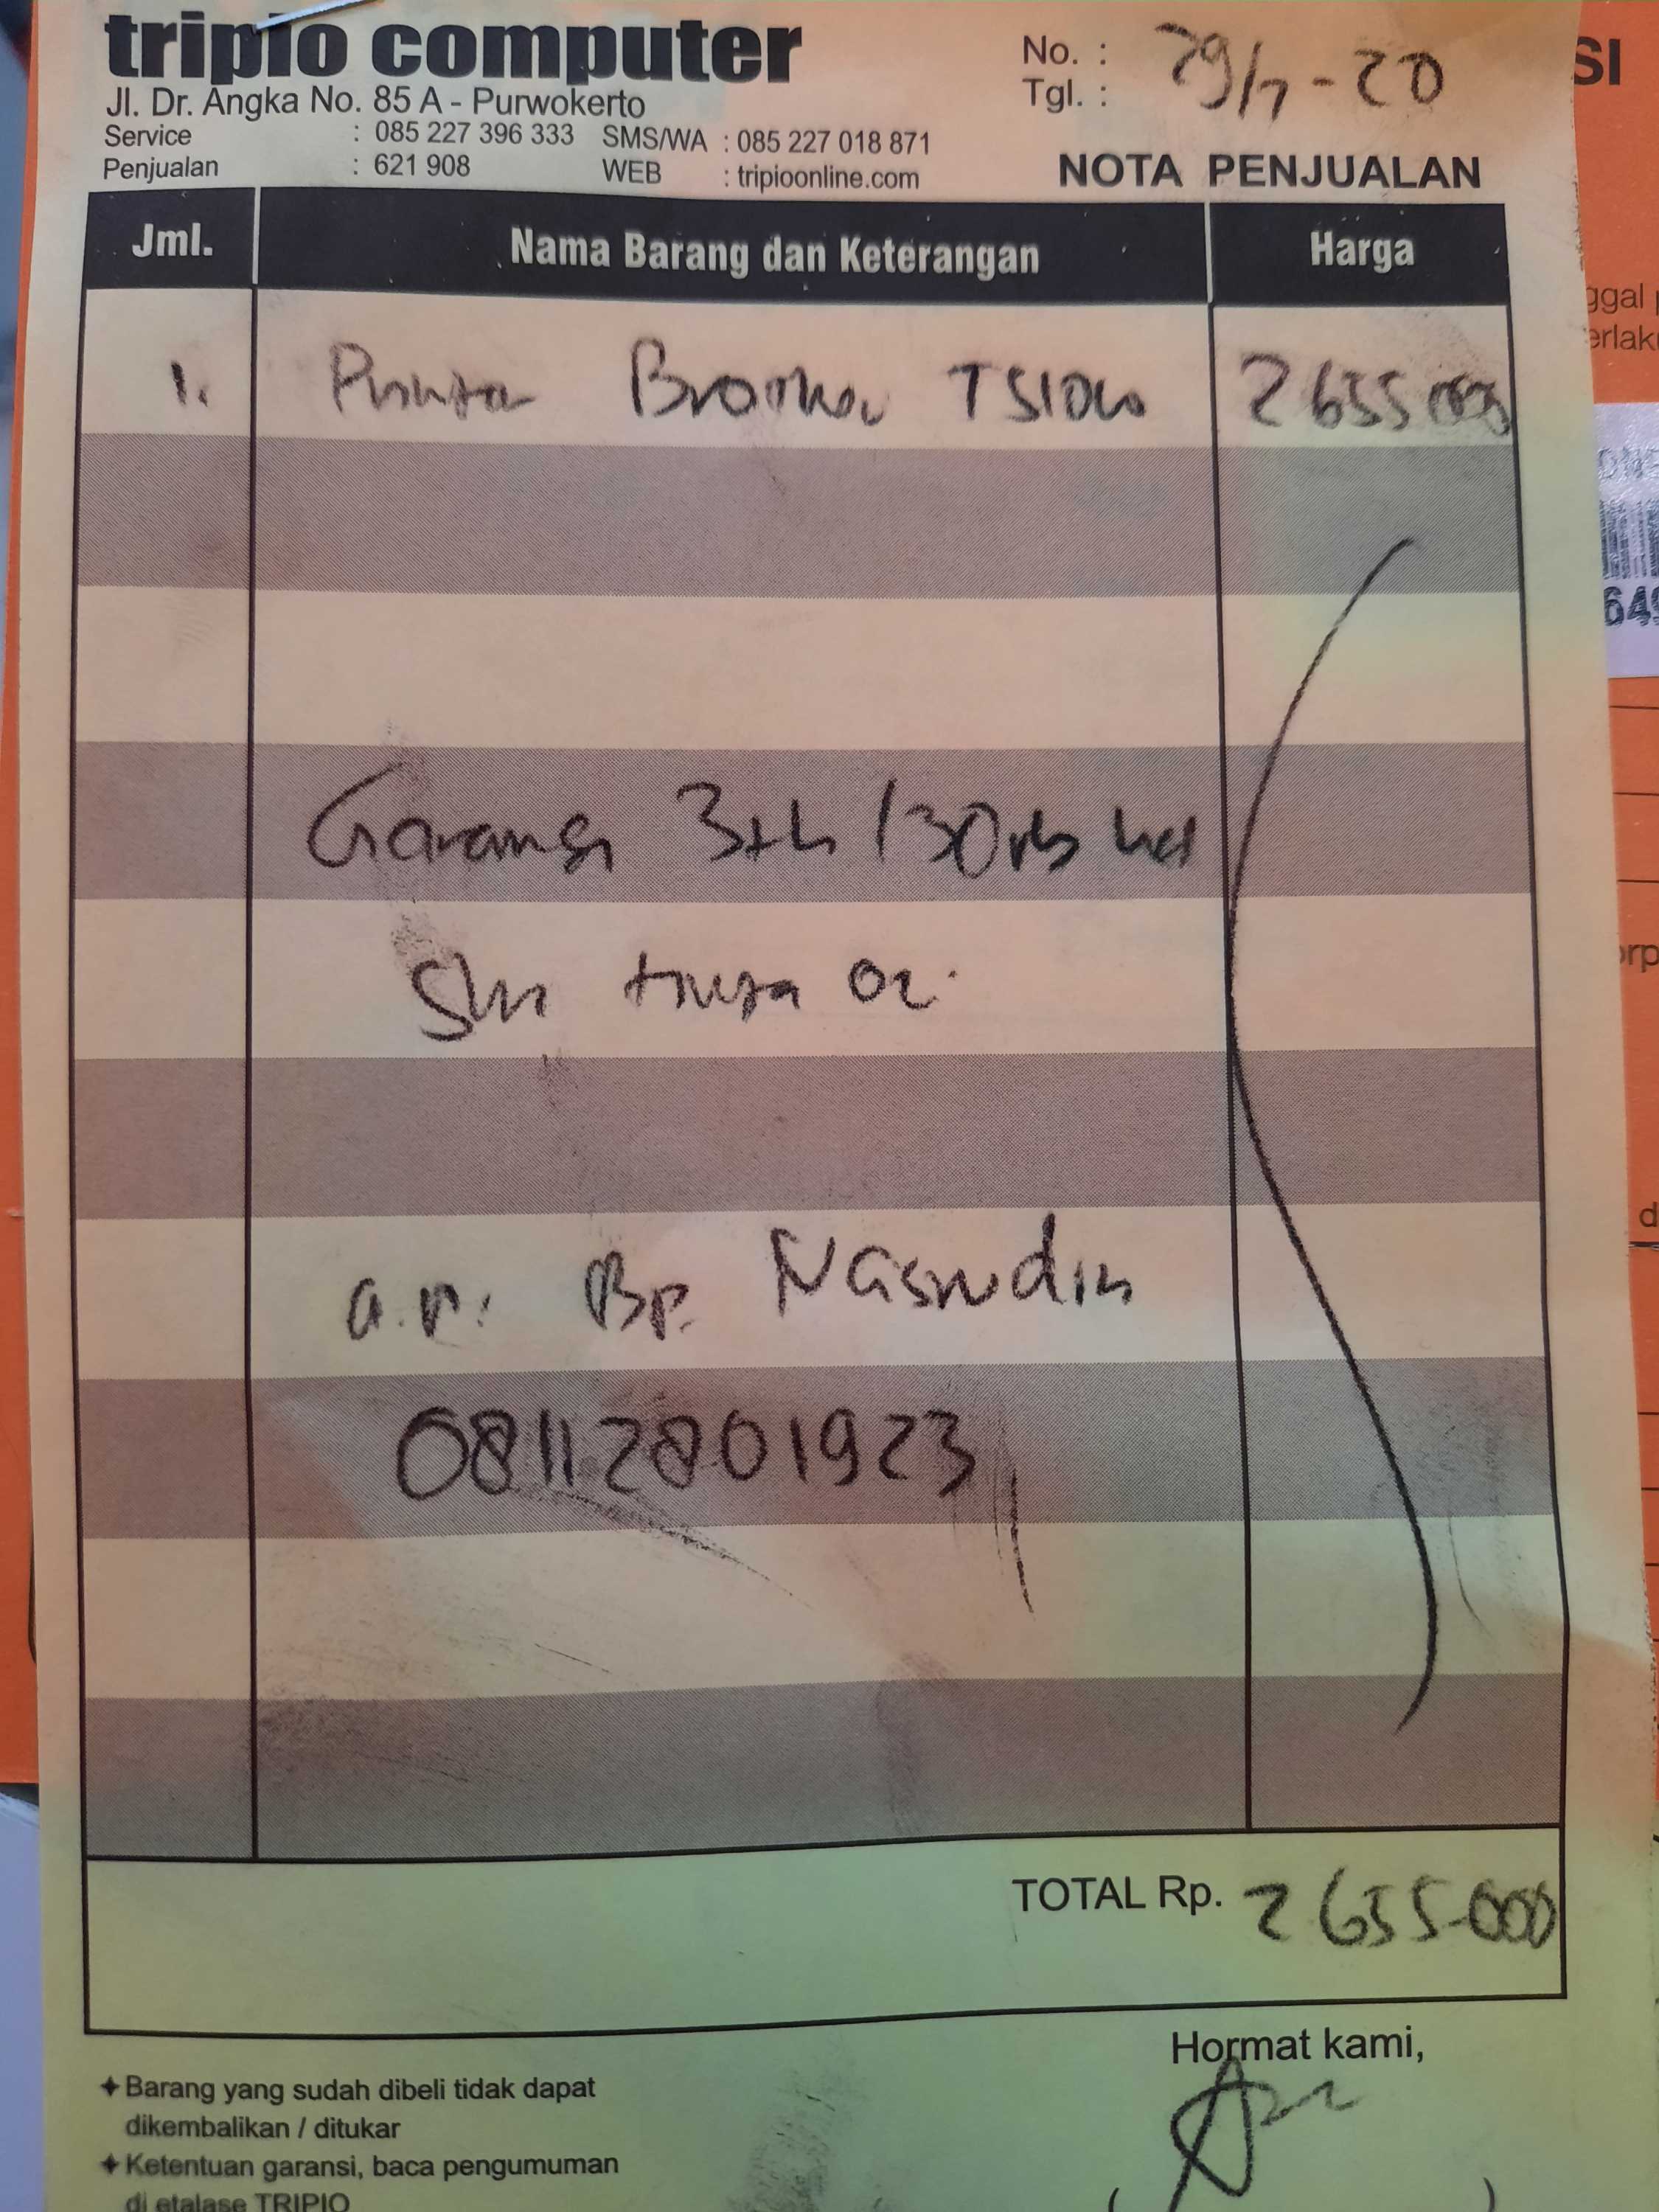 tripio computer
Jl. Dr. Angka No. 85 A - Purwokerto
Service : 085 227 396 333 SMS/WA : 085 227 018 871
Penjualan : 621 908 WEB : tripioonline.com
No. :
Tgl. : 29/7-20
NOTA PENJUALAN
Jml. Nama Barang dan Keterangan Harga
1. Printer Brother T510w 2655000
Garansi 3th / 30rb
tinta
a.n. Bp. Nasrudin
08112801923
TOTAL Rp. 2655.000
Hormat kami,
( )
Barang yang sudah dibeli tidak dapat
dikembalikan / ditukar
Ketentuan garansi, baca pengumuman
di etalase TRIPIO
SI
ggal
erlak
649
orp
d